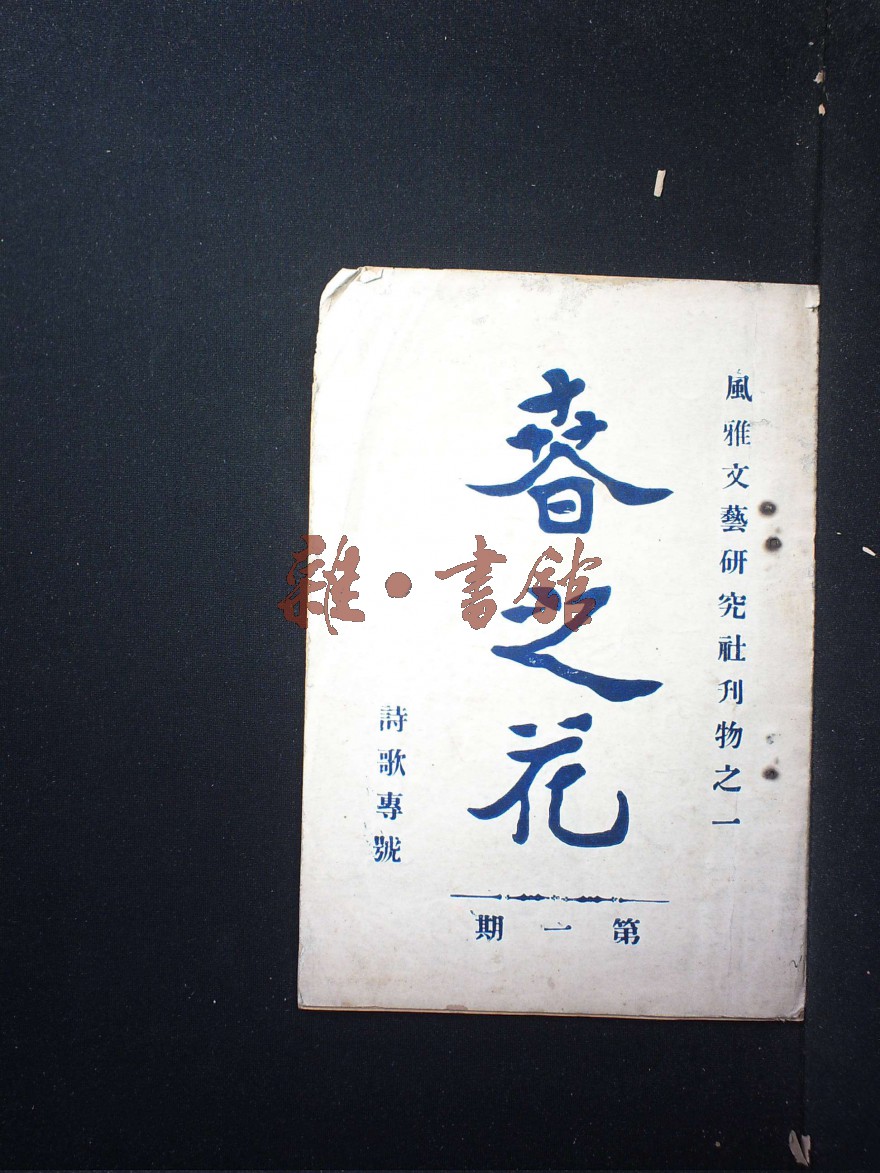 風雅文藝研究社刊物之一
春之花
詩歌專號
第一期
雜·書館